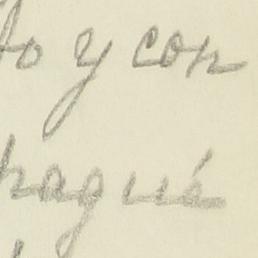 to y con
pagué